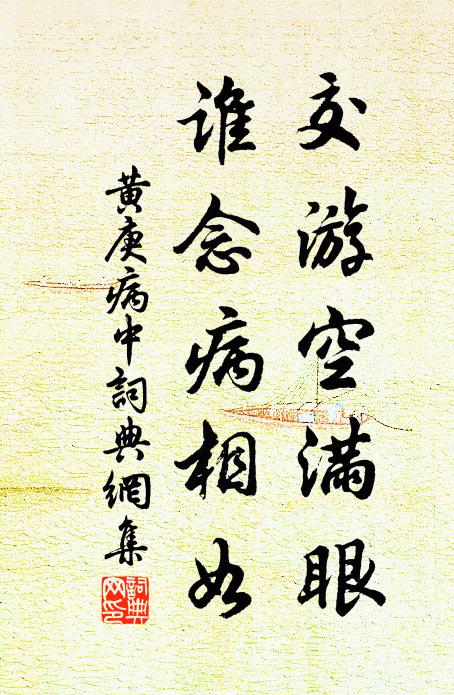 交游空滿眼
誰念病相如
黃庚病中詞典網集
詞典网印